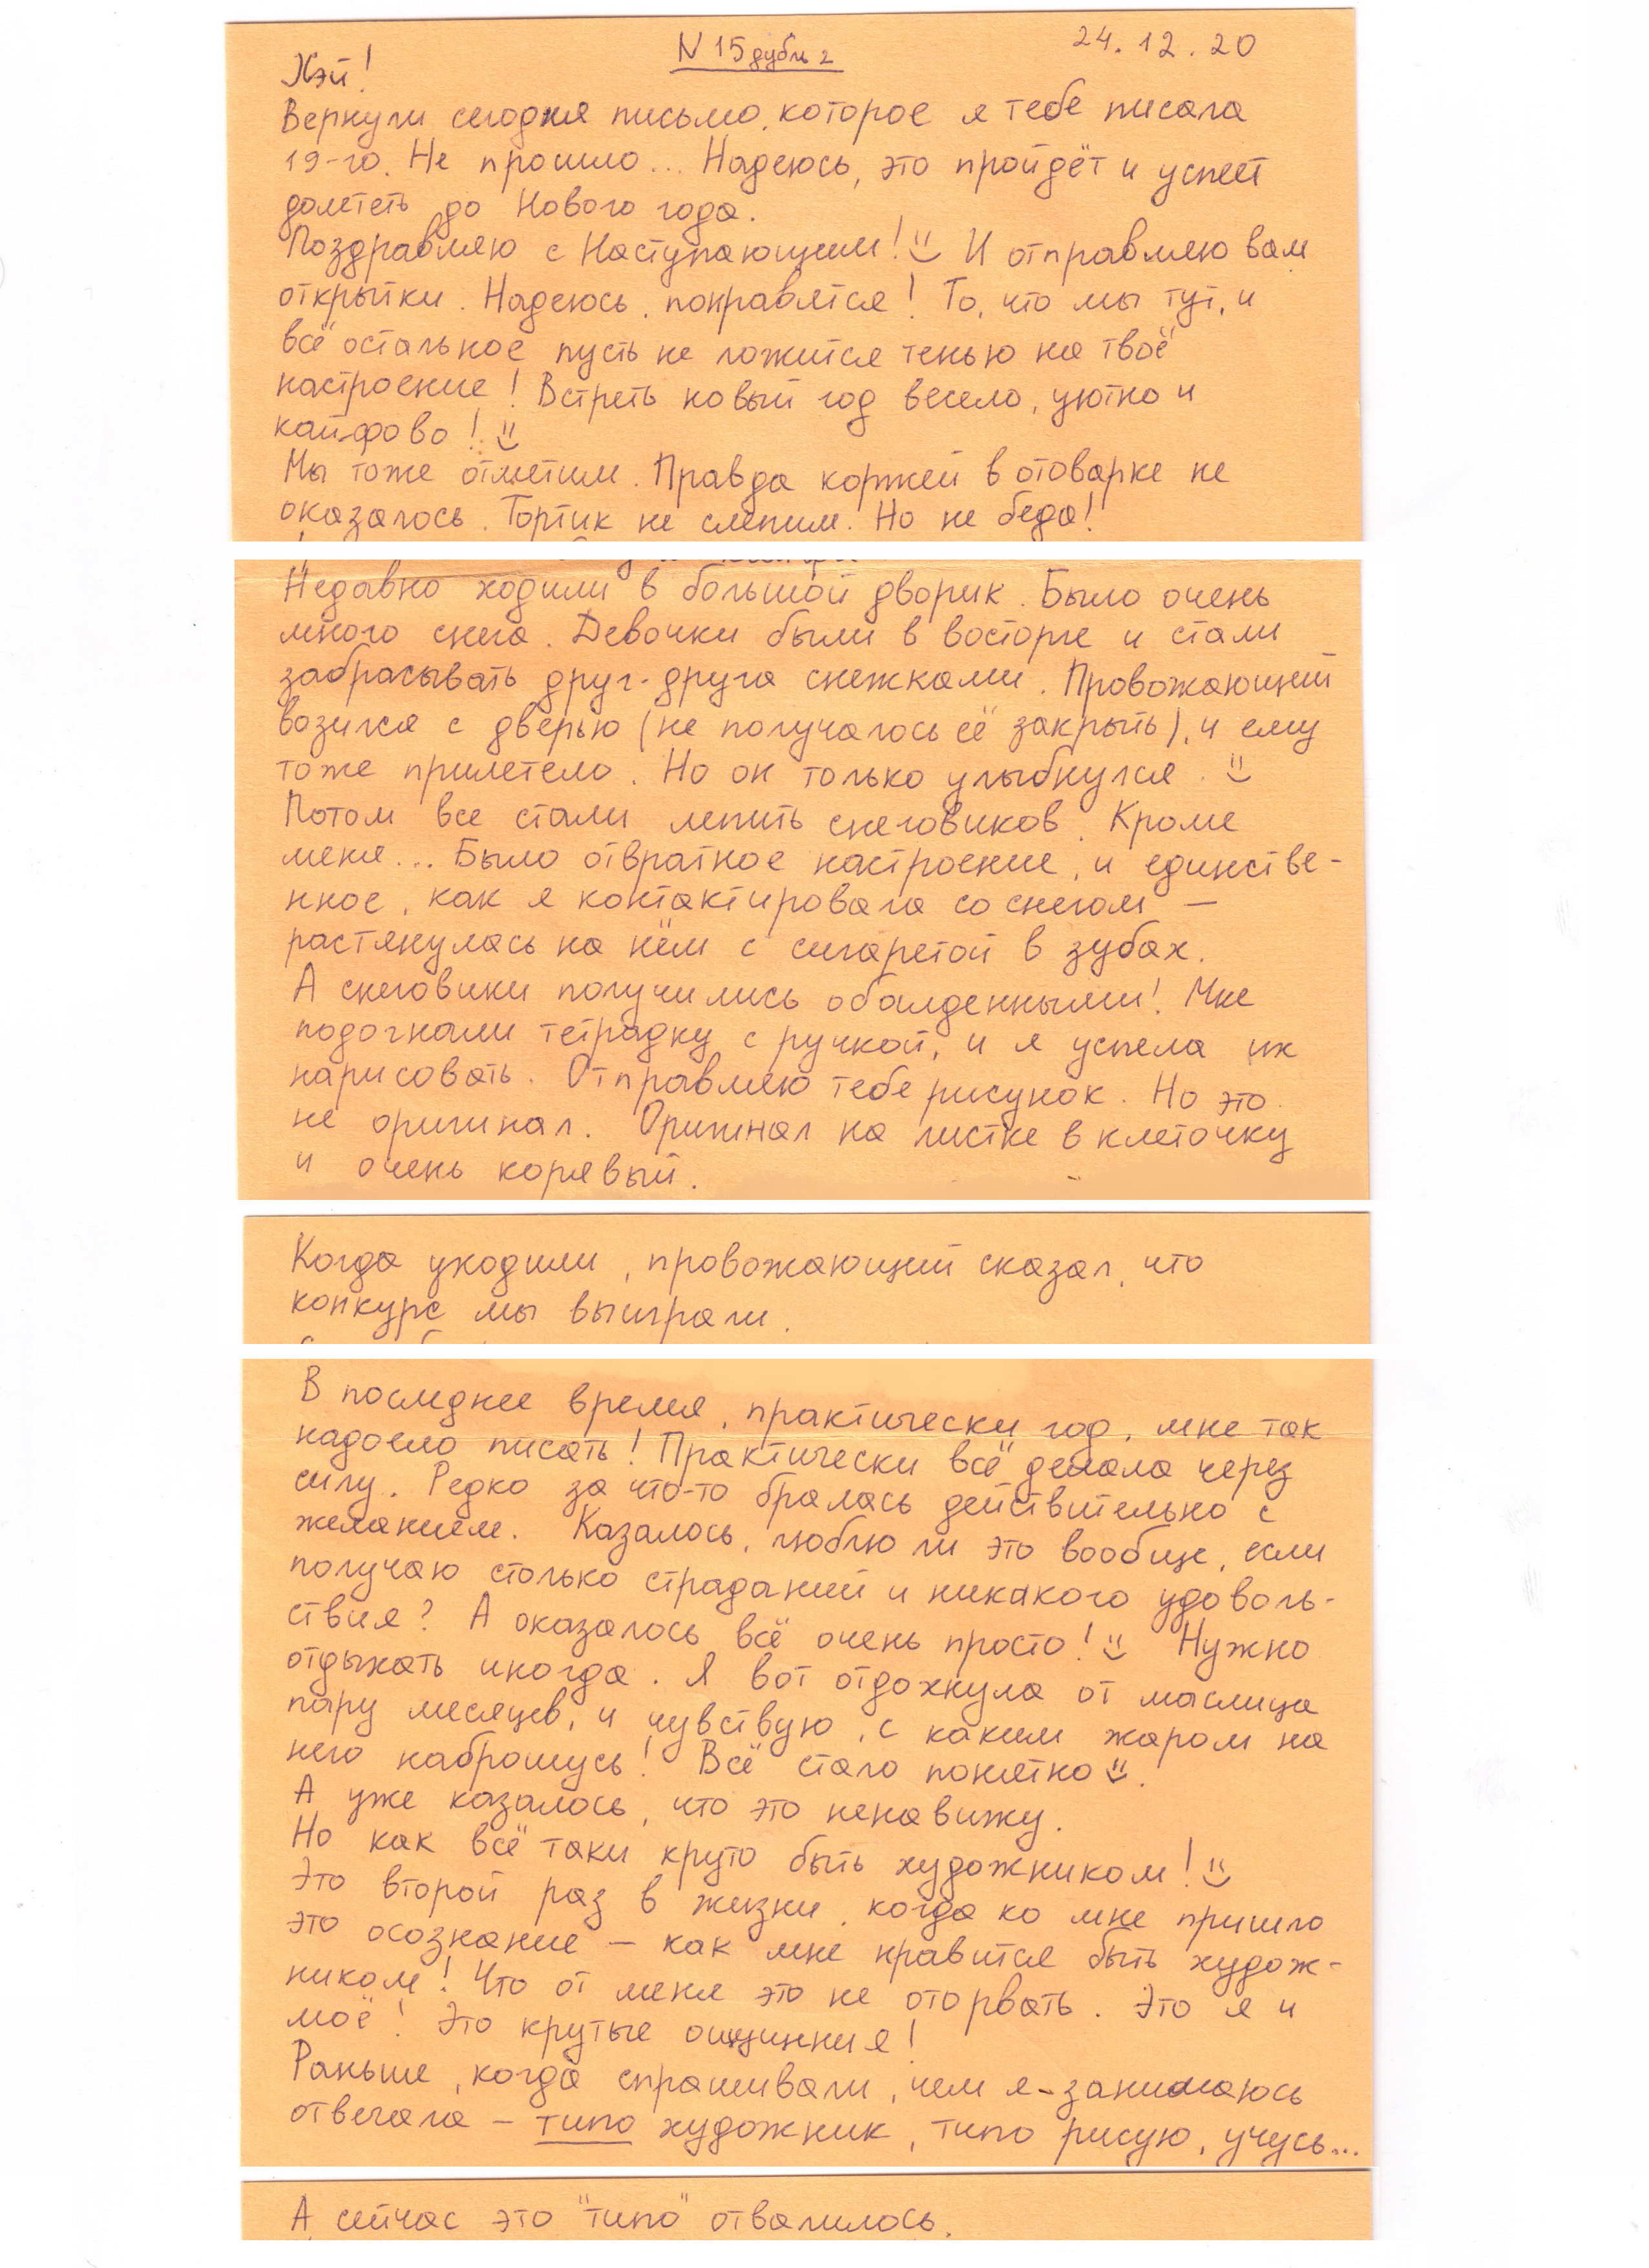 N 15 дубль 2
24.12.20
Хэй!
Вернули сегодня письмо, которое я тебе писала
19-го. Не прошло... Надеюсь, это пройдёт и успеет
долететь до Нового года.
Поздравляю с Наступающим! И отправляю вам
открытки. Надеюсь, понравятся! То, что мы тут, и
всё остальное пусть не ложится тенью на твоё
настроение! Встреть новый год весело, уютно и
кайфово!
Мы тоже отметим. Правда коржей в отоварке не
оказалось. Тортик не слепим. Но не беда!
Недавно ходили в большой дворик. Было очень
много снега. Девочки были в восторге и стали
забрасывать друг-друга снежками. Провожающий
возился с дверью (не получалось её закрыть), и ему
тоже прилетело. Но он только улыбнулся.
Потом все стали лепить снеговиков. Кроме
меня... Было отвратное настроение, и единстве-
нное, как я контактировала со снегом –
растянулась на нём с сигаретой в зубах.
А снеговики получились обалденными! Мне
подогнали тетрадку с ручкой, и я успела их
нарисовать. Отправляю тебе рисунок. Но это
не оригинал. Оригинал на листке в клеточку
и очень корявый.
Когда уходили, провожающий сказал, что
конкурс мы выиграли.
В последнее время, практически год, мне так
надоело писать! Практически всё делала через
силу. Редко за что-то бралась действительно с
желанием. Казалось, люблю ли это вообще, если
получаю столько страданий и никакого удоволь-
ствия? А оказалось всё очень просто! Нужно
отдыхать иногда. Я вот отдохнула от маслица
пару месяцев, и чувствую, с каким жаром на
него наброшусь! Всё стало понятно.
А уже казалось, что это ненавижу.
Но как всё таки круто быть художником!
Это второй раз в жизни, когда ко мне пришло
это осознание – как мне нравится быть худож-
ником! Что от меня это не оторвать. Это я и
моё! Это крутые ощущения!
Раньше, когда спрашивали, чем я занимаюсь
отвечала – типо художник, типо рисую, учусь...
А сейчас это "типо" отвалилось.